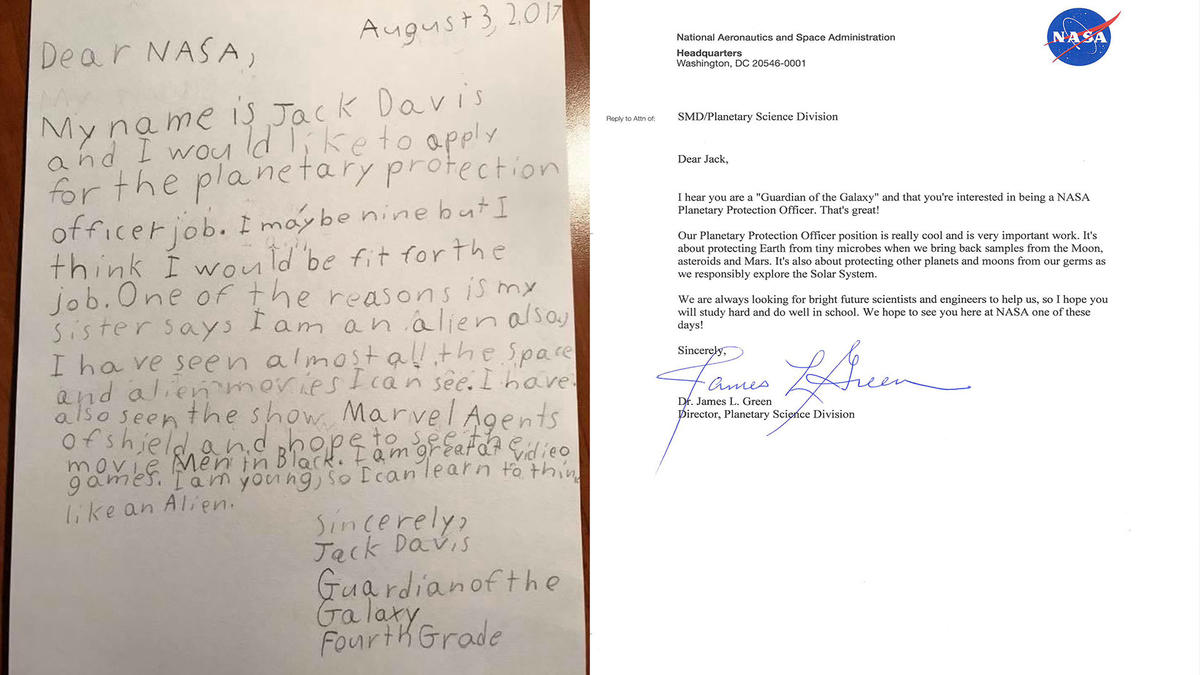 August 3, 2017
Dear NASA,
My name is Jack Davis
and I would like to apply
for the planetary protection
officer job. I maybe nine but I
think I would be fit for the
job. One of the reasons is my
sister says I am an alien also,
I have seen almost all the space
and alien movies I can see. I have
also seen the show Marvel Agents
of shield and hope to see the
movie Men in Black. I am great at vidieo
games. I am young, so I can learn to think
like an Alien.
Sincerely,
Jack Davis
Guardian of the
Galaxy
Fourth Grade
National Aeronautics and Space Administration
Headquarters
Washington, DC 20546-0001
NASA
Reply to Attn of:
SMD/Planetary Science Division
Dear Jack,
I hear you are a "Guardian of the Galaxy" and that you're interested in being a NASA
Planetary Protection Officer. That's great!
Our Planetary Protection Officer position is really cool and is very important work. It's
about protecting Earth from tiny microbes when we bring back samples from the Moon,
asteroids and Mars. It's also about protecting other planets and moons from our germs as
we responsibly explore the Solar System.
We are always looking for bright future scientists and engineers to help us, so I hope you
will study hard and do well in school. We hope to see you here at NASA one of these
days!
Sincerely,
James L Green
Dr. James L. Green
Director, Planetary Science Division